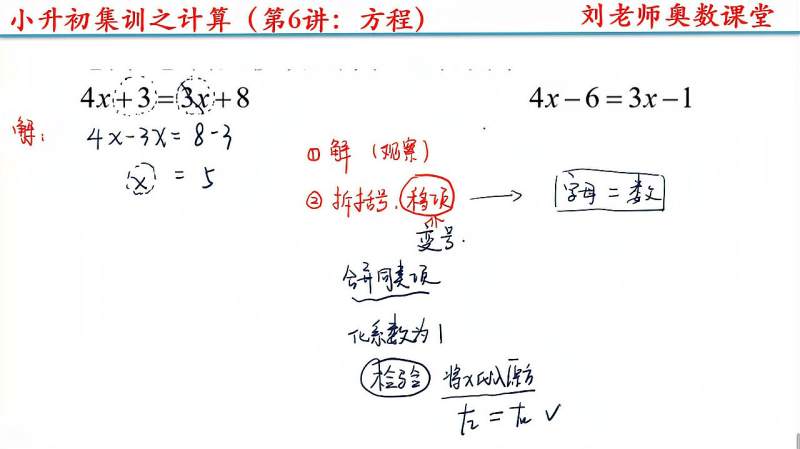 小升初集训之计算（第6讲：方程）
刘老师奥数课堂
4x+3=3x+8
4x-6=3x-1
解：
4x-3x=8-3
x = 5
① 解（观察）
② 拆括号、移项 → 字母=数
变号.
合并同类项
化系数为1
检验 将x代入原方
左=右 ✓